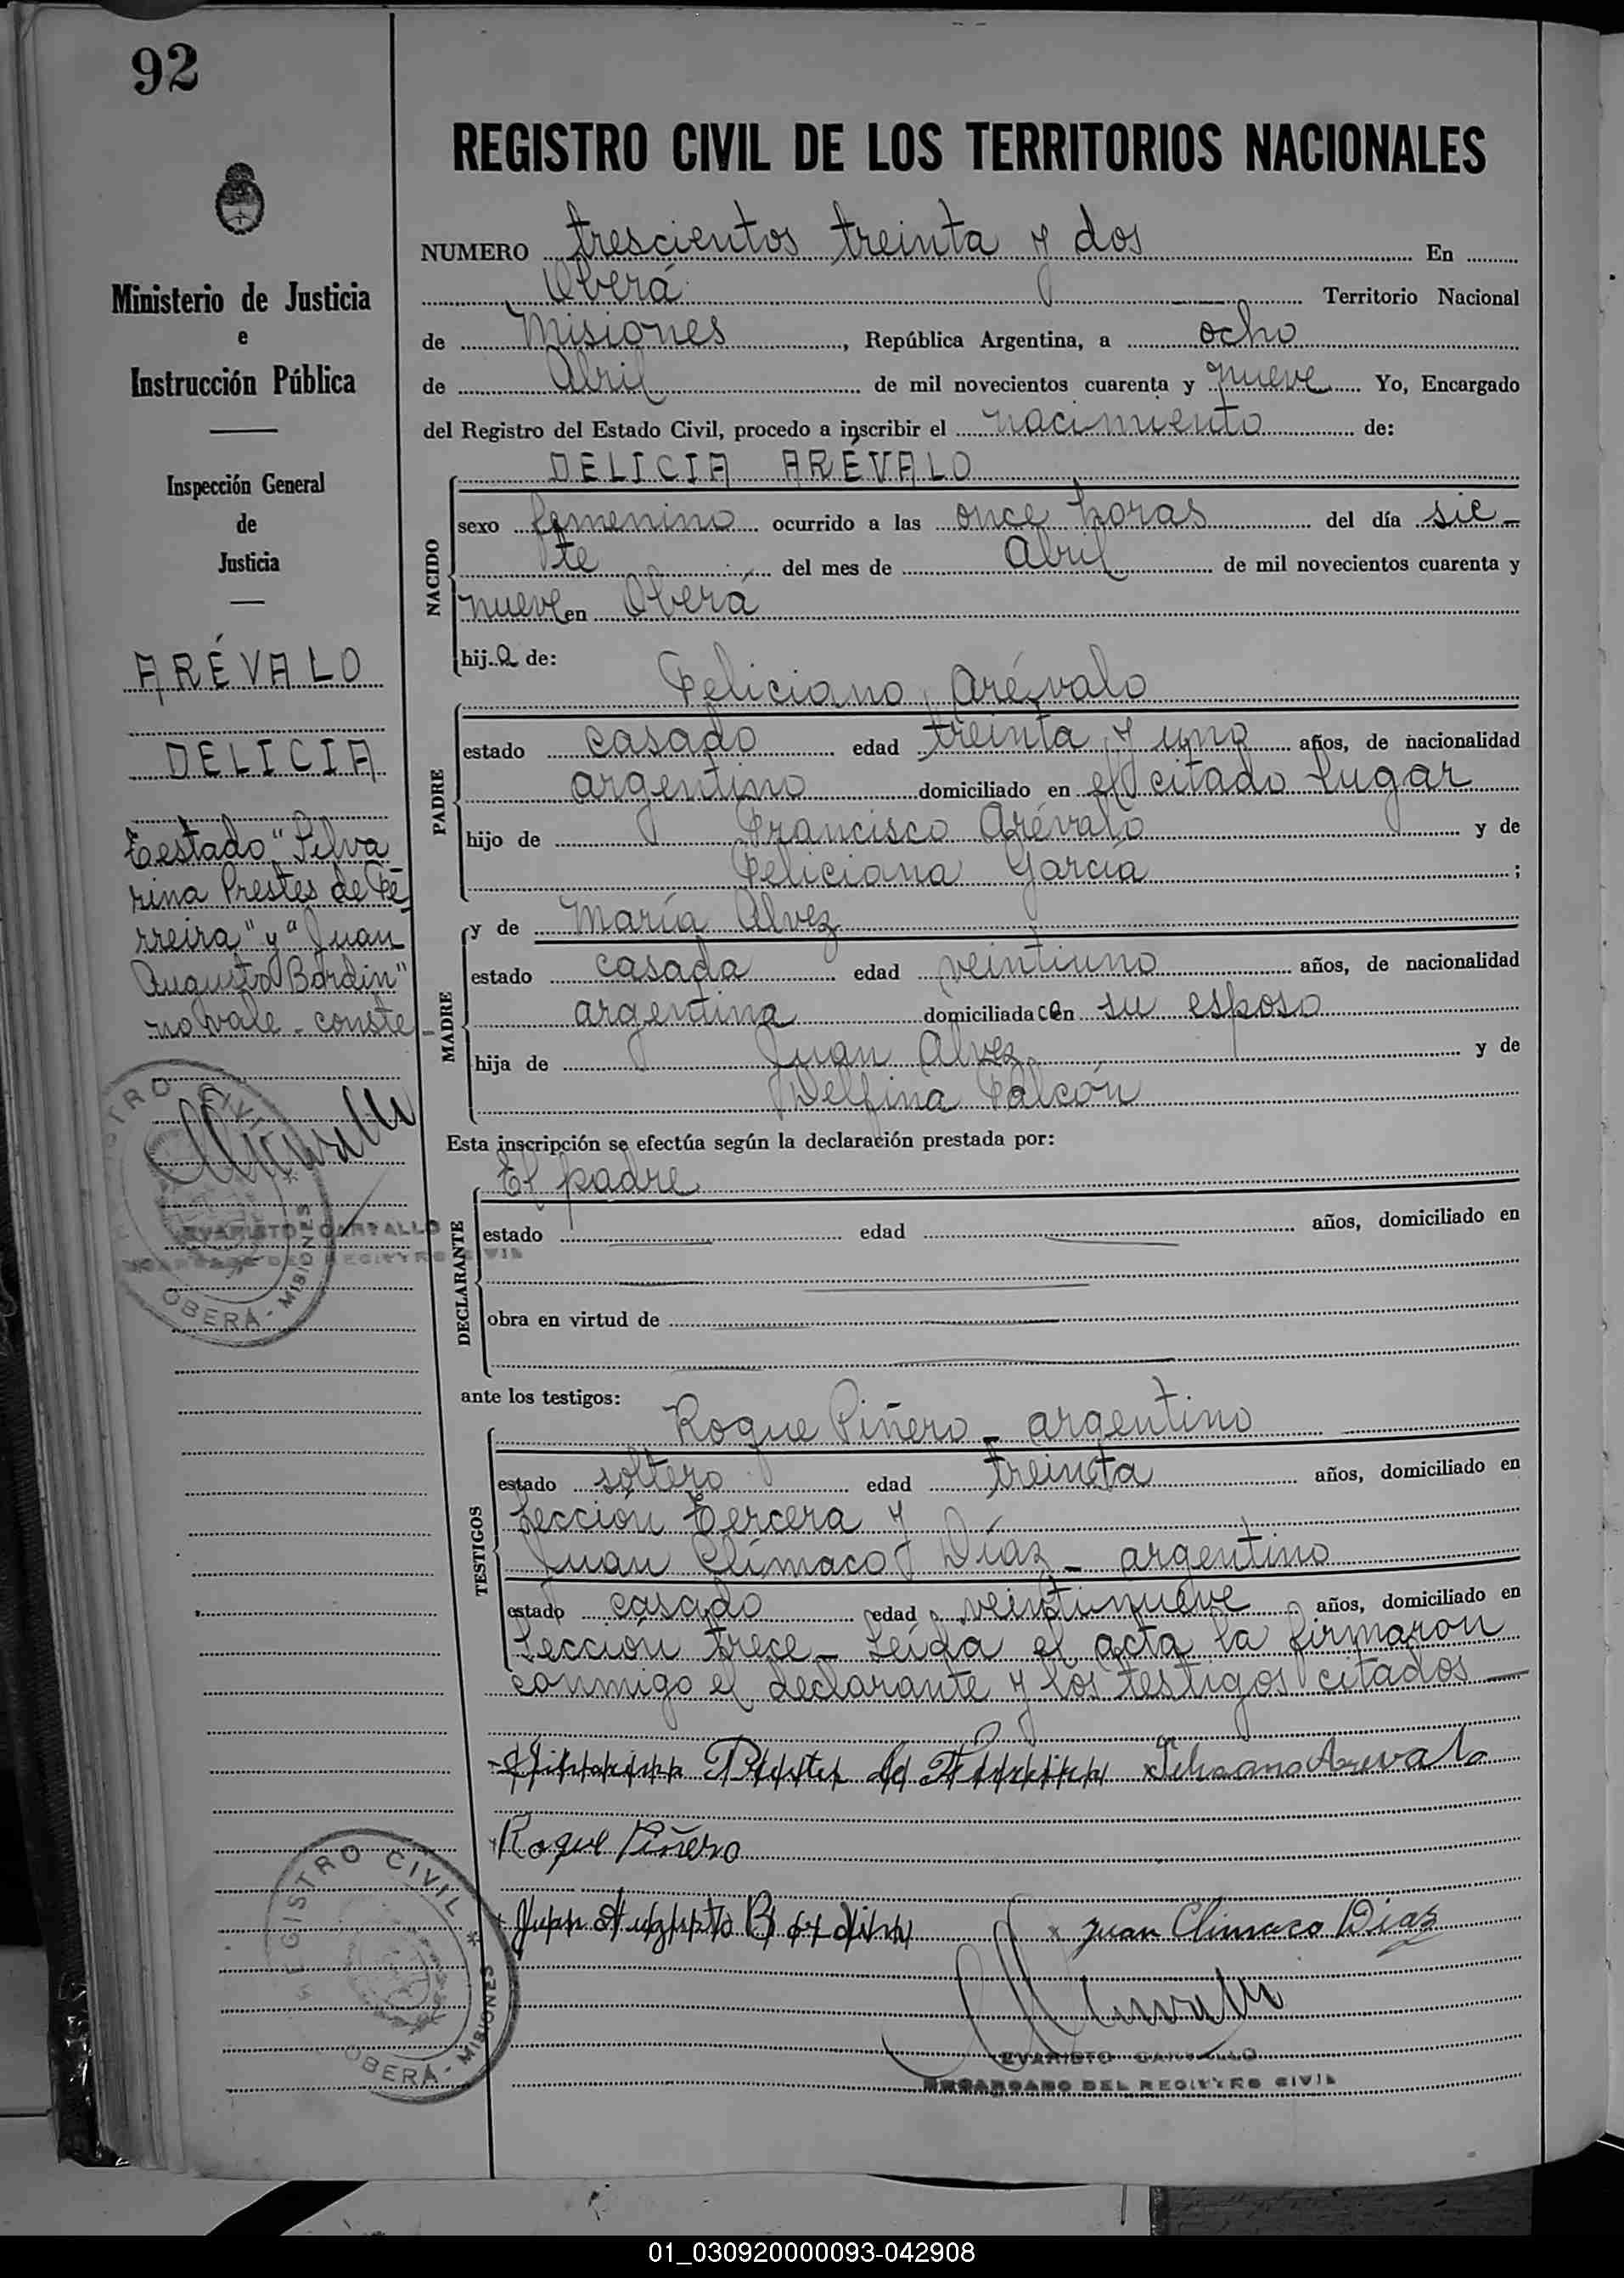 92
Ministerio de Justicia
e
Instrucción Pública
Inspección General
de
Justicia
ARÉVALO
DELICIA
Testado "Silva
rina Prestes de Fe-
rreira" y "Juan
Augusto Bardin"
no vale - conste -
REGISTRO CIVIL
OBERÁ - MISIONES
EVARISTO CARVALLO
ENCARGADO DEL REGISTRO CIVIL
REGISTRO CIVIL DE LOS TERRITORIOS NACIONALES
NUMERO trescientos treinta y dos En
Oberá Territorio Nacional
de Misiones, República Argentina, a ocho
de Abril de mil novecientos cuarenta y nueve Yo, Encargado
del Registro del Estado Civil, procedo a inscribir el nacimiento de:
DELICIA ARÉVALO
NACIDO
sexo femenino ocurrido a las once horas del día sie-
te del mes de Abril de mil novecientos cuarenta y
nueve en Oberá
hija de:
Feliciano Arévalo
PADRE
estado casado edad treinta y uno años, de nacionalidad
argentino domiciliado en el citado lugar
hijo de Francisco Arévalo y de
Feliciana García ;
MADRE
y de María Alvez
estado casada edad veintiuno años, de nacionalidad
argentina domiciliada con su esposo
hija de Juan Alvez y de
Delfina Falcón
Esta inscripción se efectúa según la declaración prestada por:
DECLARANTE
El padre
estado edad años, domiciliado en
obra en virtud de
ante los testigos:
TESTIGOS
Roque Piñero - argentino
estado soltero edad treinta años, domiciliado en
Sección Tercera y
Juan Clímaco Díaz - argentino
estado casado edad veintinueve años, domiciliado en
Sección trece - Leída el acta la firmaron
conmigo el declarante y los testigos citados -
Silvarina Prestes de Ferreira Feliciano Arevalo
Roque Piñero
Juan Augusto Bardin Juan Climaco Diaz
REGISTRO CIVIL
OBERÁ - MISIONES
EVARISTO CARVALLO
ENCARGADO DEL REGISTRO CIVIL
01_030920000093-042908